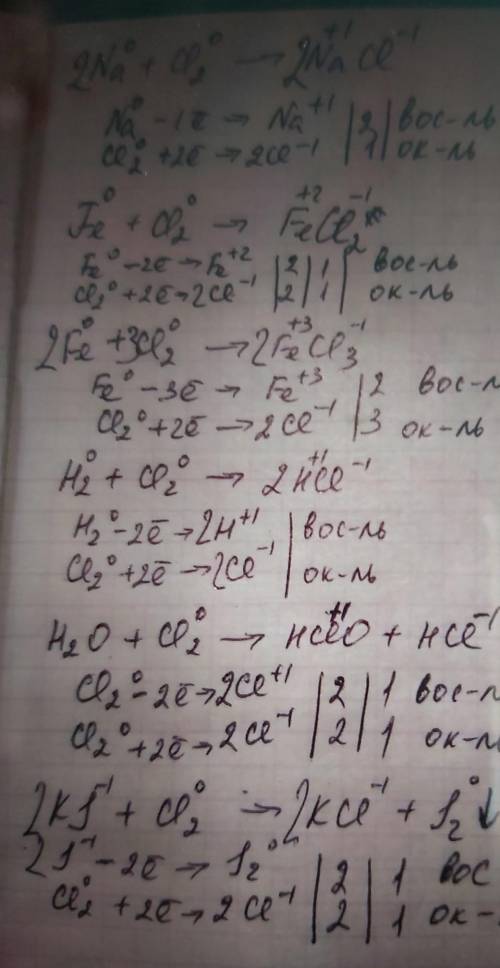 2Na⁰ + Cl₂⁰ → 2Na⁺¹Cl⁻¹
Na⁰ - 1ē → Na⁺¹ | 2 | вос-ль
Cl₂⁰ + 2ē → 2Cl⁻¹ | 1 | ок-ль
Fe⁰ + Cl₂⁰ → Fe⁺²Cl₂⁻¹
Fe⁰ - 2ē → Fe⁺² | 2 | 1 | вос-ль
Cl₂⁰ + 2ē → 2Cl⁻¹ | 2 | 1 | ок-ль
2Fe⁰ + 3Cl₂⁰ → 2Fe⁺³Cl₃⁻¹
Fe⁰ - 3ē → Fe⁺³ | 2 вос-л
Cl₂⁰ + 2ē → 2Cl⁻¹ | 3 ок-ль
H₂⁰ + Cl₂⁰ → 2H⁺¹Cl⁻¹
H₂⁰ - 2ē → 2H⁺¹ | вос-ль
Cl₂⁰ + 2ē → 2Cl⁻¹ | ок-ль
H₂O + Cl₂⁰ → HCl⁺¹O + HCl⁻¹
Cl₂⁰ - 2ē → 2Cl⁺¹ | 2 | 1 вос-л
Cl₂⁰ + 2ē → 2Cl⁻¹ | 2 | 1 ок-л
2KI⁻¹ + Cl₂⁰ → 2KCl⁻¹ + I₂⁰↓
2I⁻¹ - 2ē → I₂⁰ | 2 | 1 вос
Cl₂⁰ + 2ē → 2Cl⁻¹ | 2 | 1 ок-